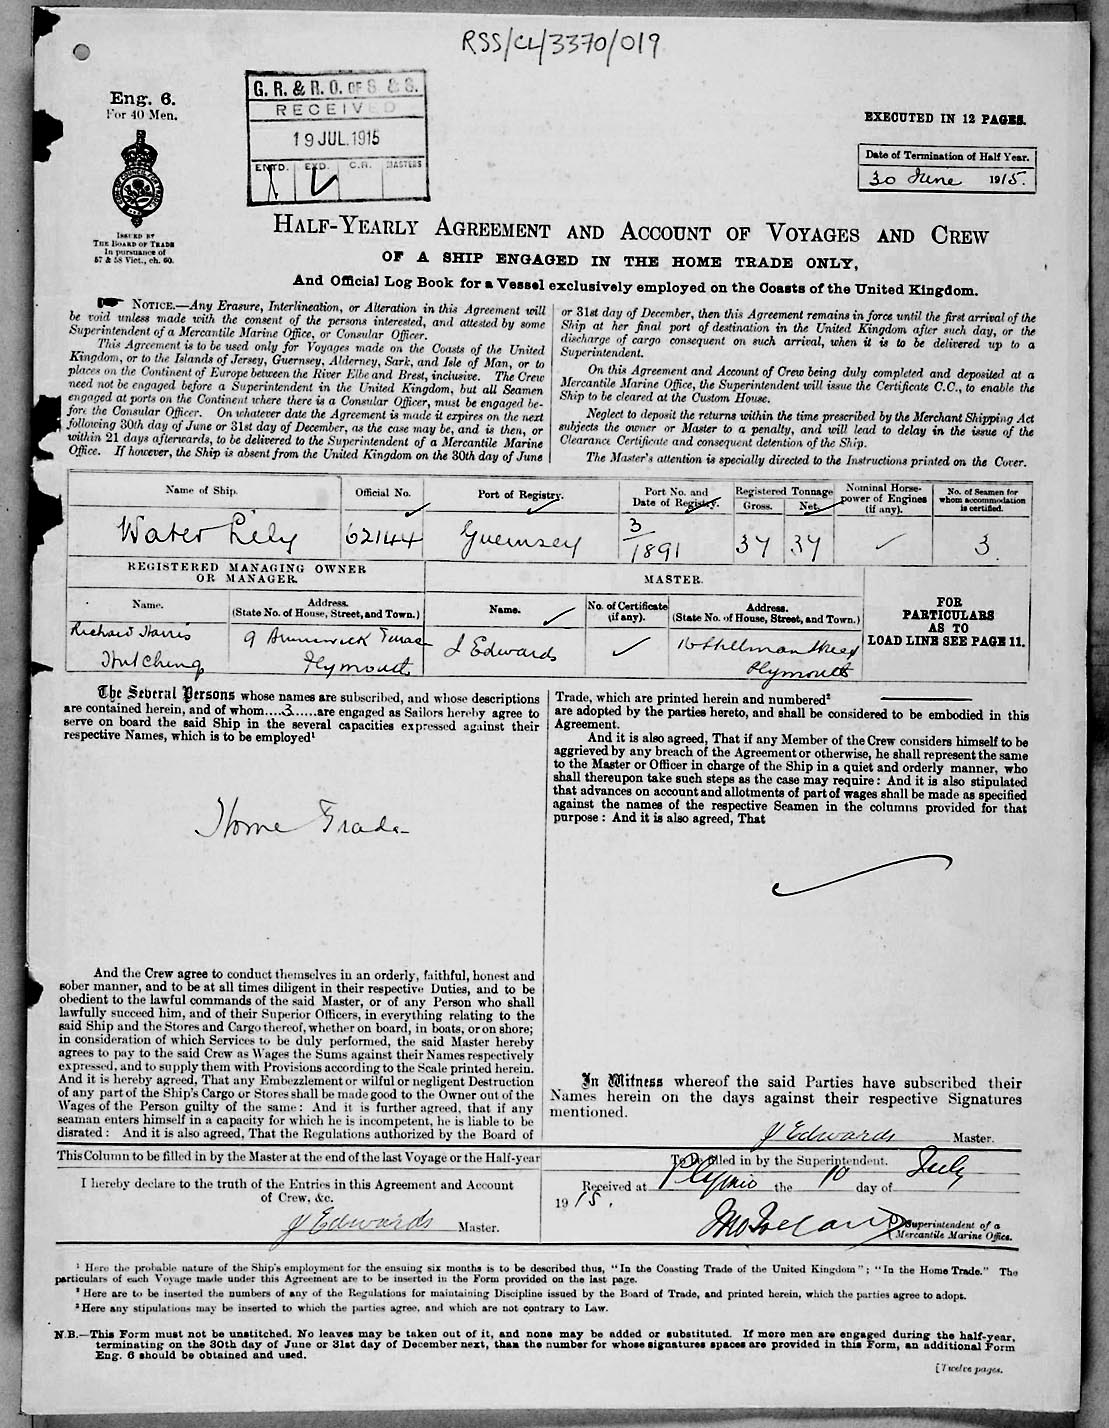 RSS/CL/3370/019
Eng. 6.
For 40 Men.
G. R. & R. O. OF S. & S.
RECEIVED
19 JUL. 1915
ENTD. EXD. C.R. MASTERS
EXECUTED IN 12 PAGES.
Date of Termination of Half Year.
30 June 1915.
ISSUED BY
THE BOARD OF TRADE
In pursuance of
57 & 58 Vict., ch. 60.
HALF-YEARLY AGREEMENT AND ACCOUNT OF VOYAGES AND CREW
OF A SHIP ENGAGED IN THE HOME TRADE ONLY,
And Official Log Book for a Vessel exclusively employed on the Coasts of the United Kingdom.
NOTICE.—Any Erasure, Interlineation, or Alteration in this Agreement will
be void unless made with the consent of the persons interested, and attested by some
Superintendent of a Mercantile Marine Office, or Consular Officer.
This Agreement is to be used only for Voyages made on the Coasts of the United
Kingdom, or to the Islands of Jersey, Guernsey, Alderney, Sark, and Isle of Man, or to
places on the Continent of Europe between the River Elbe and Brest, inclusive. The Crew
need not be engaged before a Superintendent in the United Kingdom, but all Seamen
engaged at ports on the Continent where there is a Consular Officer, must be engaged be-
fore the Consular Officer. On whatever date the Agreement is made it expires on the next
following 30th day of June or 31st day of December, as the case may be, and is then, or
within 21 days afterwards, to be delivered to the Superintendent of a Mercantile Marine
Office. If however, the Ship is absent from the United Kingdom on the 30th day of June
or 31st day of December, then this Agreement remains in force until the first arrival of the
Ship at her final port of destination in the United Kingdom after such day, or the
discharge of cargo consequent on such arrival, when it is to be delivered up to a
Superintendent.
On this Agreement and Account of Crew being duly completed and deposited at a
Mercantile Marine Office, the Superintendent will issue the Certificate C.C., to enable the
Ship to be cleared at the Custom House.
Neglect to deposit the returns within the time prescribed by the Merchant Shipping Act
subjects the owner or Master to a penalty, and will lead to delay in the issue of the
Clearance Certificate and consequent detention of the Ship.
The Master's attention is specially directed to the Instructions printed on the Cover.
Name of Ship. Official No. Port of Registry. Port No. and Date of Registry. Registered Tonnage Gross. Net. Nominal Horse-power of Engines (if any). No. of Seamen for whom accommodation is certified.
Water Lily 62144 Guernsey 3/1891 37 37 3.
REGISTERED MANAGING OWNER
OR MANAGER.
MASTER.
Name. Address. (State No. of House, Street, and Town.) Name. No. of Certificate (if any). Address. (State No. of House, Street, and Town.)
FOR
PARTICULARS
AS TO
LOAD LINE SEE PAGE 11.
Richard Harris 9 Brunswick Terrace J Edwards 16 Stillman Street
Hutchings Plymouth Plymouth
The Several Persons whose names are subscribed, and whose descriptions
are contained herein, and of whom....3......are engaged as Sailors hereby agree to
serve on board the said Ship in the several capacities expressed against their
respective Names, which is to be employed¹
Home Trade
And the Crew agree to conduct themselves in an orderly, faithful, honest and
sober manner, and to be at all times diligent in their respective Duties, and to be
obedient to the lawful commands of the said Master, or of any Person who shall
lawfully succeed him, and of their Superior Officers, in everything relating to the
said Ship and the Stores and Cargo thereof, whether on board, in boats, or on shore;
in consideration of which Services to be duly performed, the said Master hereby
agrees to pay to the said Crew as Wages the Sums against their Names respectively
expressed, and to supply them with Provisions according to the Scale printed herein.
And it is hereby agreed, That any Embezzlement or wilful or negligent Destruction
of any part of the Ship's Cargo or Stores shall be made good to the Owner out of the
Wages of the Person guilty of the same: And it is further agreed, that if any
seaman enters himself in a capacity for which he is incompetent, he is liable to be
disrated: And it is also agreed, That the Regulations authorized by the Board of
Trade, which are printed herein and numbered²
are adopted by the parties hereto, and shall be considered to be embodied in this
Agreement.
And it is also agreed, That if any Member of the Crew considers himself to be
aggrieved by any breach of the Agreement or otherwise, he shall represent the same
to the Master or Officer in charge of the Ship in a quiet and orderly manner, who
shall thereupon take such steps as the case may require: And it is also stipulated
that advances on account and allotments of part of wages shall be made as specified
against the names of the respective Seamen in the columns provided for that
purpose: And it is also agreed, That
In Witness whereof the said Parties have subscribed their
Names herein on the days against their respective Signatures
mentioned.
J Edwards Master.
This Column to be filled in by the Master at the end of the last Voyage or the Half-year
I hereby declare to the truth of the Entries in this Agreement and Account
of Crew, &c.
J Edwards Master.
To be filled in by the Superintendent.
Received at Plymo the 10 day of July
1915.
Superintendent of a
Mercantile Marine Office.
¹ Here the probable nature of the Ship's employment for the ensuing six months is to be described thus, "In the Coasting Trade of the United Kingdom"; "In the Home Trade." The
particulars of each Voyage made under this Agreement are to be inserted in the Form provided on the last page.
² Here are to be inserted the numbers of any of the Regulations for maintaining Discipline issued by the Board of Trade, and printed herein, which the parties agree to adopt.
³ Here any stipulations may be inserted to which the parties agree, and which are not contrary to Law.
N.B.—This Form must not be unstitched. No leaves may be taken out of it, and none may be added or substituted. If more men are engaged during the half-year,
terminating on the 30th day of June or 31st day of December next, than the number for whose signatures spaces are provided in this Form, an additional Form
Eng. 6 should be obtained and used.
[Twelve pages.